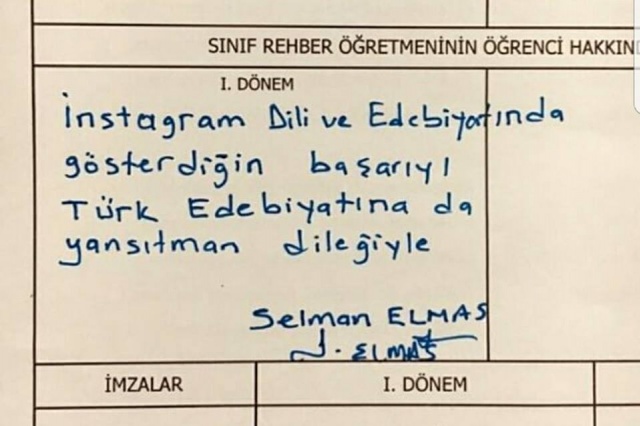 SINIF REHBER ÖĞRETMENİNİN ÖĞRENCİ HAKKIN
I. DÖNEM
İnstagram Dili ve Edebiyatında
gösterdiğin başarıyı
Türk Edebiyatına da
yansıtman dileğiyle
Selman ELMAS
S. ELMAS
İMZALAR I. DÖNEM